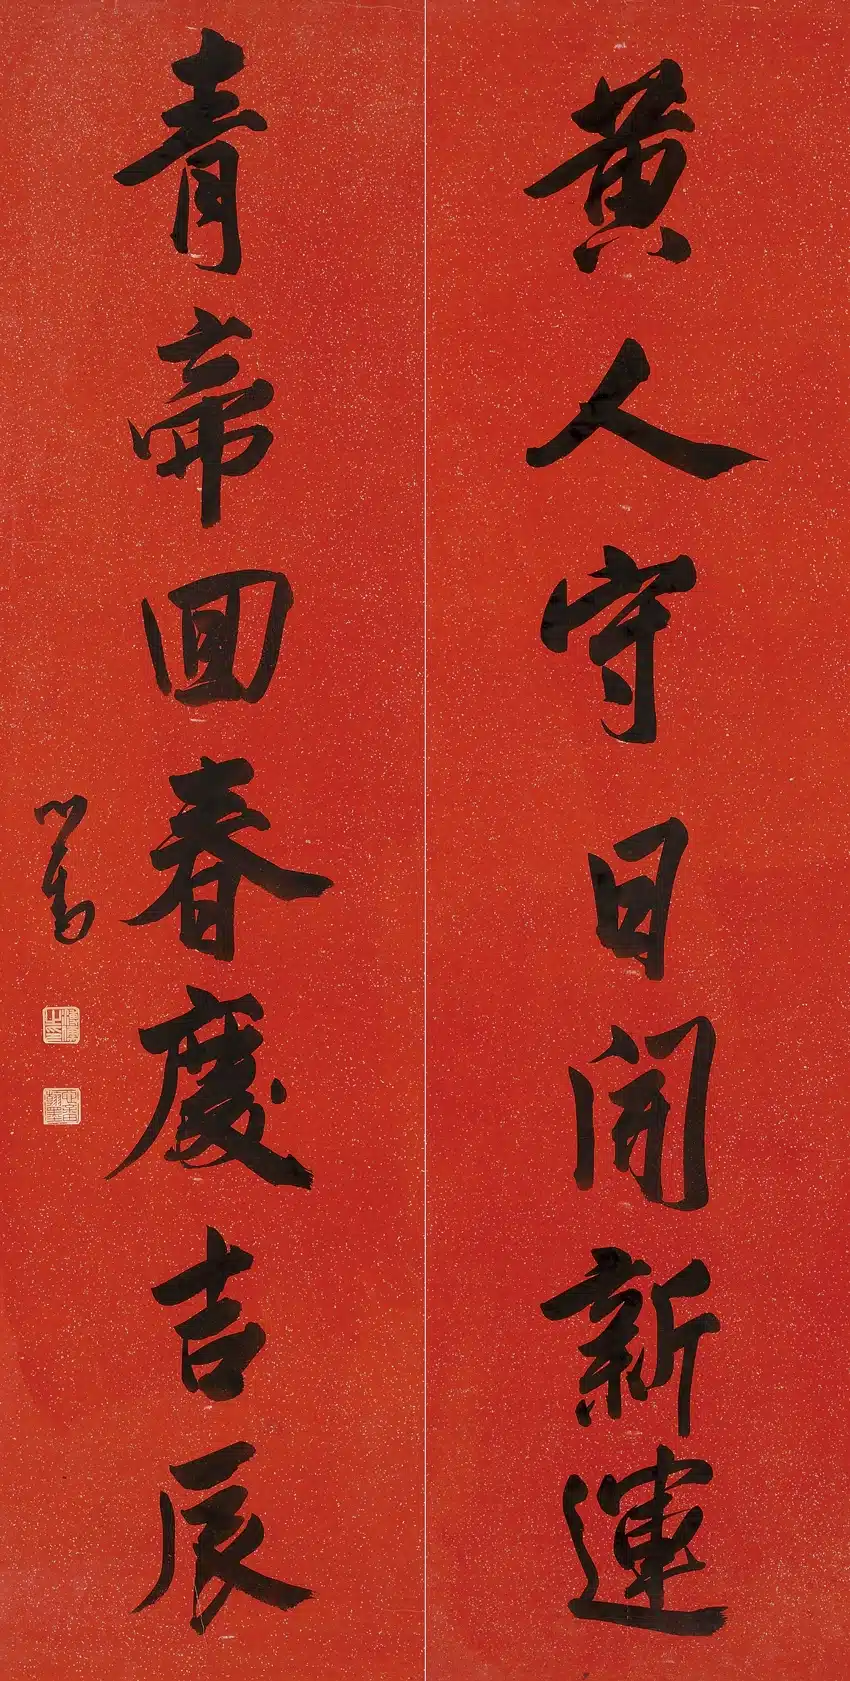 黄人守日開新運
青帝回春慶吉辰
心畬